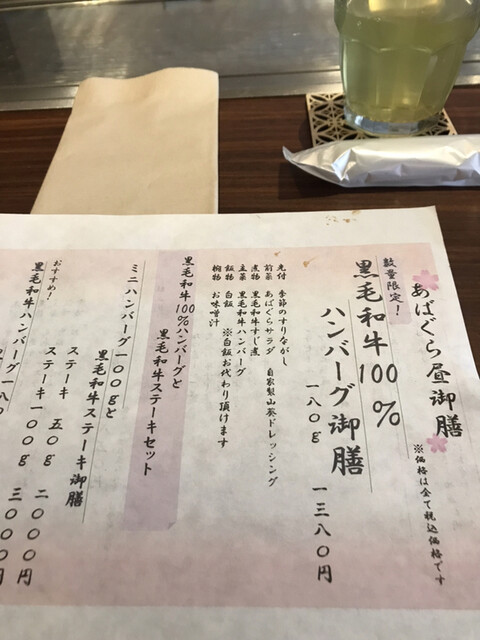 あばぐら昼御膳
※価格は全て税込価格です
数量限定！
黒毛和牛100％
ハンバーグ御膳
一八〇g 一三八〇円
先付 季節のすりながし
前菜 あばぐらサラダ 自家製山葵ドレッシング
煮物 黒毛和牛すじ煮
主菜 黒毛和牛ハンバーグ
飯物 白飯 ※白飯お代わり頂けます
椀物 お味噌汁
黒毛和牛100％ハンバーグと
黒毛和牛ステーキセット
ミニハンバーグ一〇〇gと
黒毛和牛ステーキ御膳
ステーキ 五〇g 二〇〇〇円
ステーキ一〇〇g 三〇〇〇円
おすすめ！
黒毛和牛ハンバーグ一八〇